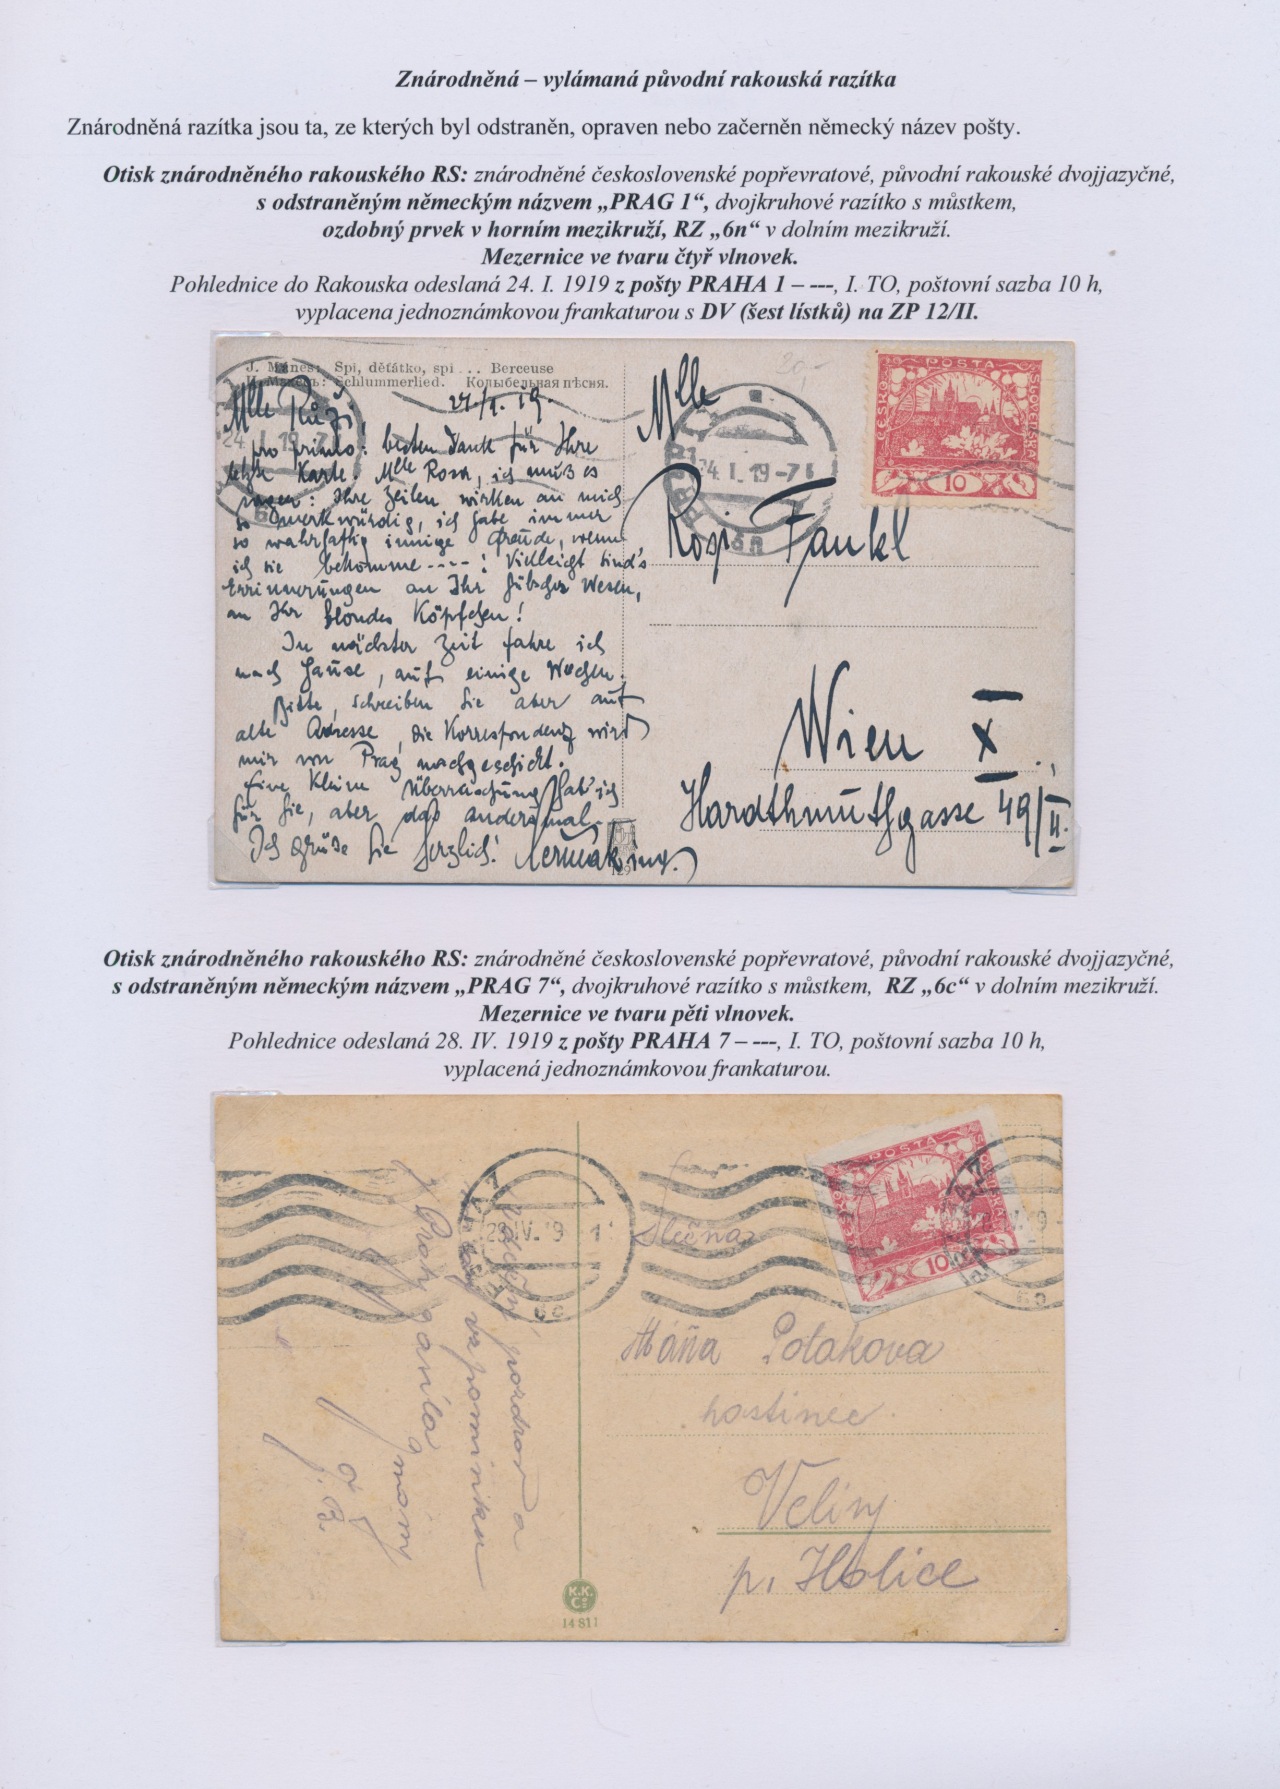 Znárodněná – vylámaná původní rakouská razítka
Znárodněná razítka jsou ta, ze kterých byl odstraněn, opraven nebo začerněn německý název pošty.
Otisk znárodněného rakouského RS: znárodněné československé popřevratové, původní rakouské dvojjazyčné,
s odstraněným německým názvem „PRAG 1“, dvojkruhové razítko s můstkem,
ozdobný prvek v horním mezikruží, RZ „6n“ v dolním mezikruží.
Mezernice ve tvaru čtyř vlnovek.
Pohlednice do Rakouska odeslaná 24. I. 1919 z pošty PRAHA 1 – ---, I. TO, poštovní sazba 10 h,
vyplacena jednoznámkovou frankaturou s DV (šest lístků) na ZP 12/II.
J. Mánes: Spi, děťátko, spi ... Berceuse
Schlummerlied. Колыбельная пѣсня.
Mlle
pro primo! besten Dank für Ihre
letzte Karte. Mlle Rosa, ich muß es
sagen: Ihre Zeilen wirken an mich
so merkwürdig, ich habe immer
so wahrhaftig innige Freude, wenn
ich sie bekomme ----! Vielleicht sind's
Errinnerungen an Ihr hübsches Wesen,
an Ihr blondes Köpfchen!
In nächster Zeit fahre ich
nach Hause, auf einige Wochen.
Bitte, schreiben Sie aber auf
alte Adresse, die Korrespondenz wird
mir von Prag nachgeschickt.
Eine kleine Überraschung hab' ich
für Sie, aber das anderesmal.
Ich grüße Sie herzlich!
Mlle
POSTA
ČESKO
SLOVENSKÁ
10
24. I. 19-7
6n
Rosi Fankl
Wien X.
Hardthmuthgasse 49/II.
129
Otisk znárodněného rakouského RS: znárodněné československé popřevratové, původní rakouské dvojjazyčné,
s odstraněným německým názvem „PRAG 7“, dvojkruhové razítko s můstkem, RZ „6c“ v dolním mezikruží.
Mezernice ve tvaru pěti vlnovek.
Pohlednice odeslaná 28. IV. 1919 z pošty PRAHA 7 – ---, I. TO, poštovní sazba 10 h,
vyplacená jednoznámkovou frankaturou.
Srdečný pozdrav a
vzpomínku
z Prahy zasílá
28. IV. 19
6c
POSTA
10
6c
Slečna
Máňa Polakova
hostinec
Veliny
p. Holice
K.K.
Co
14811